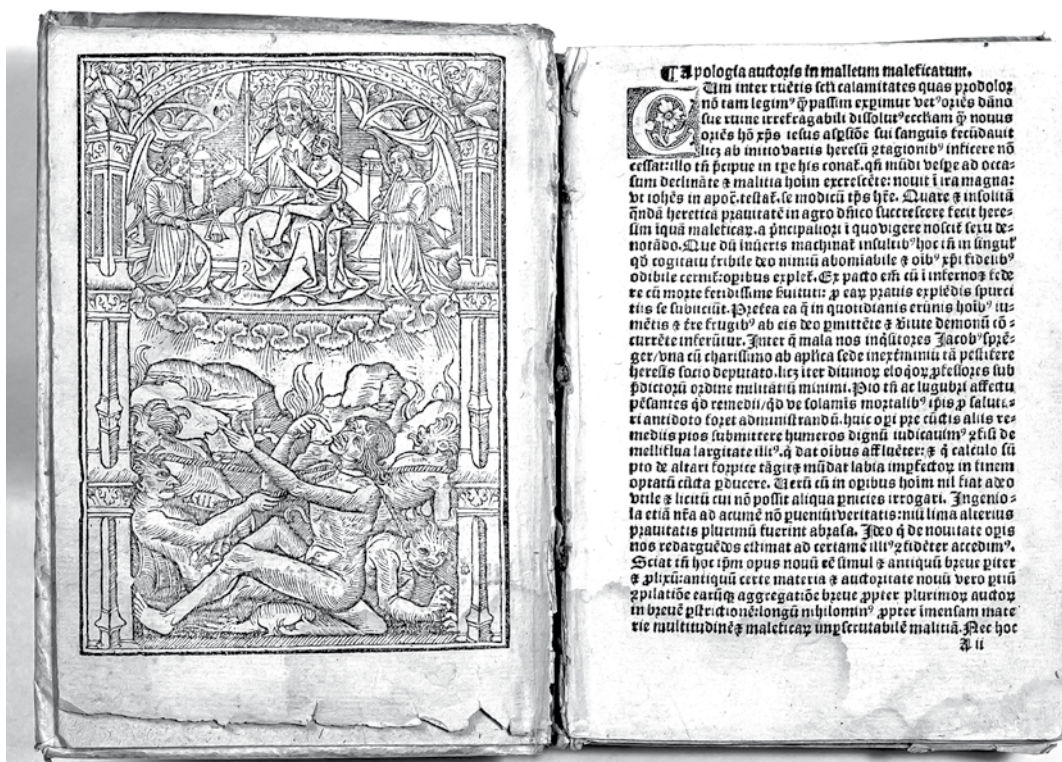 ¶ Apologia auctoris in malleum maleficarum.
CUm inter ruētis seƈli calamitates quas prodolor
nō tam legimꝰ q̄ passim experimur vetꝰ oriēs dāno
sue ruine irrefragabili dissolutꝰ eccƚiam q̄ nouus
oriēs hō xp̄s iesus asp̄siōe sui sanguīs fecūdauit
licꝫ ab initio variis heresū ꝯtagionibꝰ inficere nō
cessat: illo tn̄ p̄cipue in tp̄e his conat̄. qn̄ mūdi vesꝑe ad occa-
sum declināte ⁊ malitia hoīm excrescēte: nouit ī ira magna:
vt iohēs in apoc̄. testat̄. se modicū tp̄s hr̄e. Quare ⁊ insolitā
qn̄dā heretica prauitatē in agro dn̄ico succrescere fecit here-
sim īquā maleficaꝝ. a p̄ncipaliori ī quo vigere noscit̄ sexu de-
notādo. Que dū inūeris machinat̄ insultibꝰ hoc tn̄ in singuƚ
qđ cogitatu ťribile deo nimiū aboīabile ⁊ oībꝰ xp̄i fidelibꝰ
odibile cernit̄: oꝑibus explet̄. Ex pacto em̄ cū īfernoꝫ fede
re cū morte fetidissime ẜuituti: ꝓ eaꝝ prauis explēdis spurci
tiis se subiiciūt. Pret̄ea ea q̄ in quotidianis erūnis hoībꝰ iu-
mētis ⁊ t̄re frugibꝰ ab eis deo ꝑmittēte ⁊ v̄tute demonū cō-
currēte inferūtur. Inter q̄ mala nos inq̄sitores Jacobꝰ sprē-
ger/vna cū charissimo ab aplīca sede inexterminiū tā pestifere
heresis socio deputato. licꝫ īter diuinoꝝ eloq̄oꝝ ꝓfessores sub
p̄dictoꝝ ordine militātiū minimi. Pio tn̄ ac lugubri affectu
pēsantes qđ remedii/qđ ve solamīs mortalibꝰ ip̄is ꝓ saluta-
ri antidoto foret administrandū. huic oꝑi pre cūctis aliis re-
mediis pios submittere humeros dignū iudicauimꝰ ꝯfisi de
melliflua largitate illiꝰ. q̄ dat oībus affluēter: ⁊ q̄ calculo sū
pto de altari forpice tāgit ⁊ mūdat labia imꝑfectoꝝ in finem
optatū cūcta ꝑducere. Verū cū in oꝑibus hoīm nil fiat adeo
vtile ⁊ licitū cui nō possit aliqua ꝑnicies irrogari. Ingenio-
la etiā nr̄a ad acumē nō ꝑueniūt veritatis: niſi lima alterius
prauitatis plurimū fuerint abrasa. Ideo q̄ de nouitate oꝑis
nos redarguēdos estimat ad certamē illiꝰ ꝯfidēter accedimꝰ.
Sciat tn̄ hoc ip̄m opus nouū eē simul ⁊ antiquū breue ꝑiter
⁊ ꝓlixū: antiquū certe materia ⁊ auctoritate nouū vero ꝑtiū
ꝯpilatiōe earūqꝫ aggregatiōe breue ꝓpter plurimoꝝ auctoꝝ
in breuē ꝑstrictionē longū nihilominꝰ ꝓpter īmensam mate
rie multitudinē ⁊ maleficaꝝ imꝑscrutabilē malitiā. Nec hoc
A ii